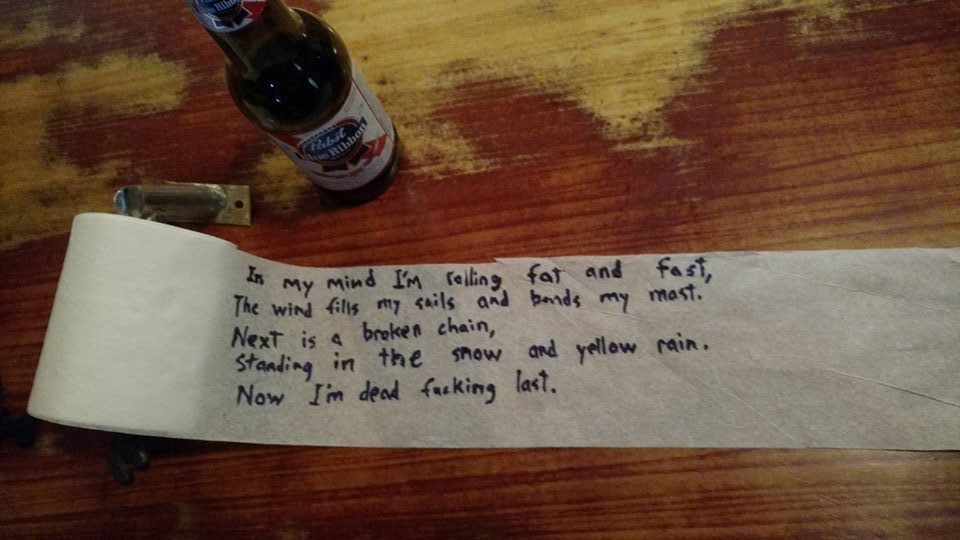 Pabst
Blue Ribbon
In my mind I'm rolling fat and fast,
The wind fills my sails and bends my mast.
Next is a broken chain,
Standing in the snow and yellow rain.
Now I'm dead fucking last.